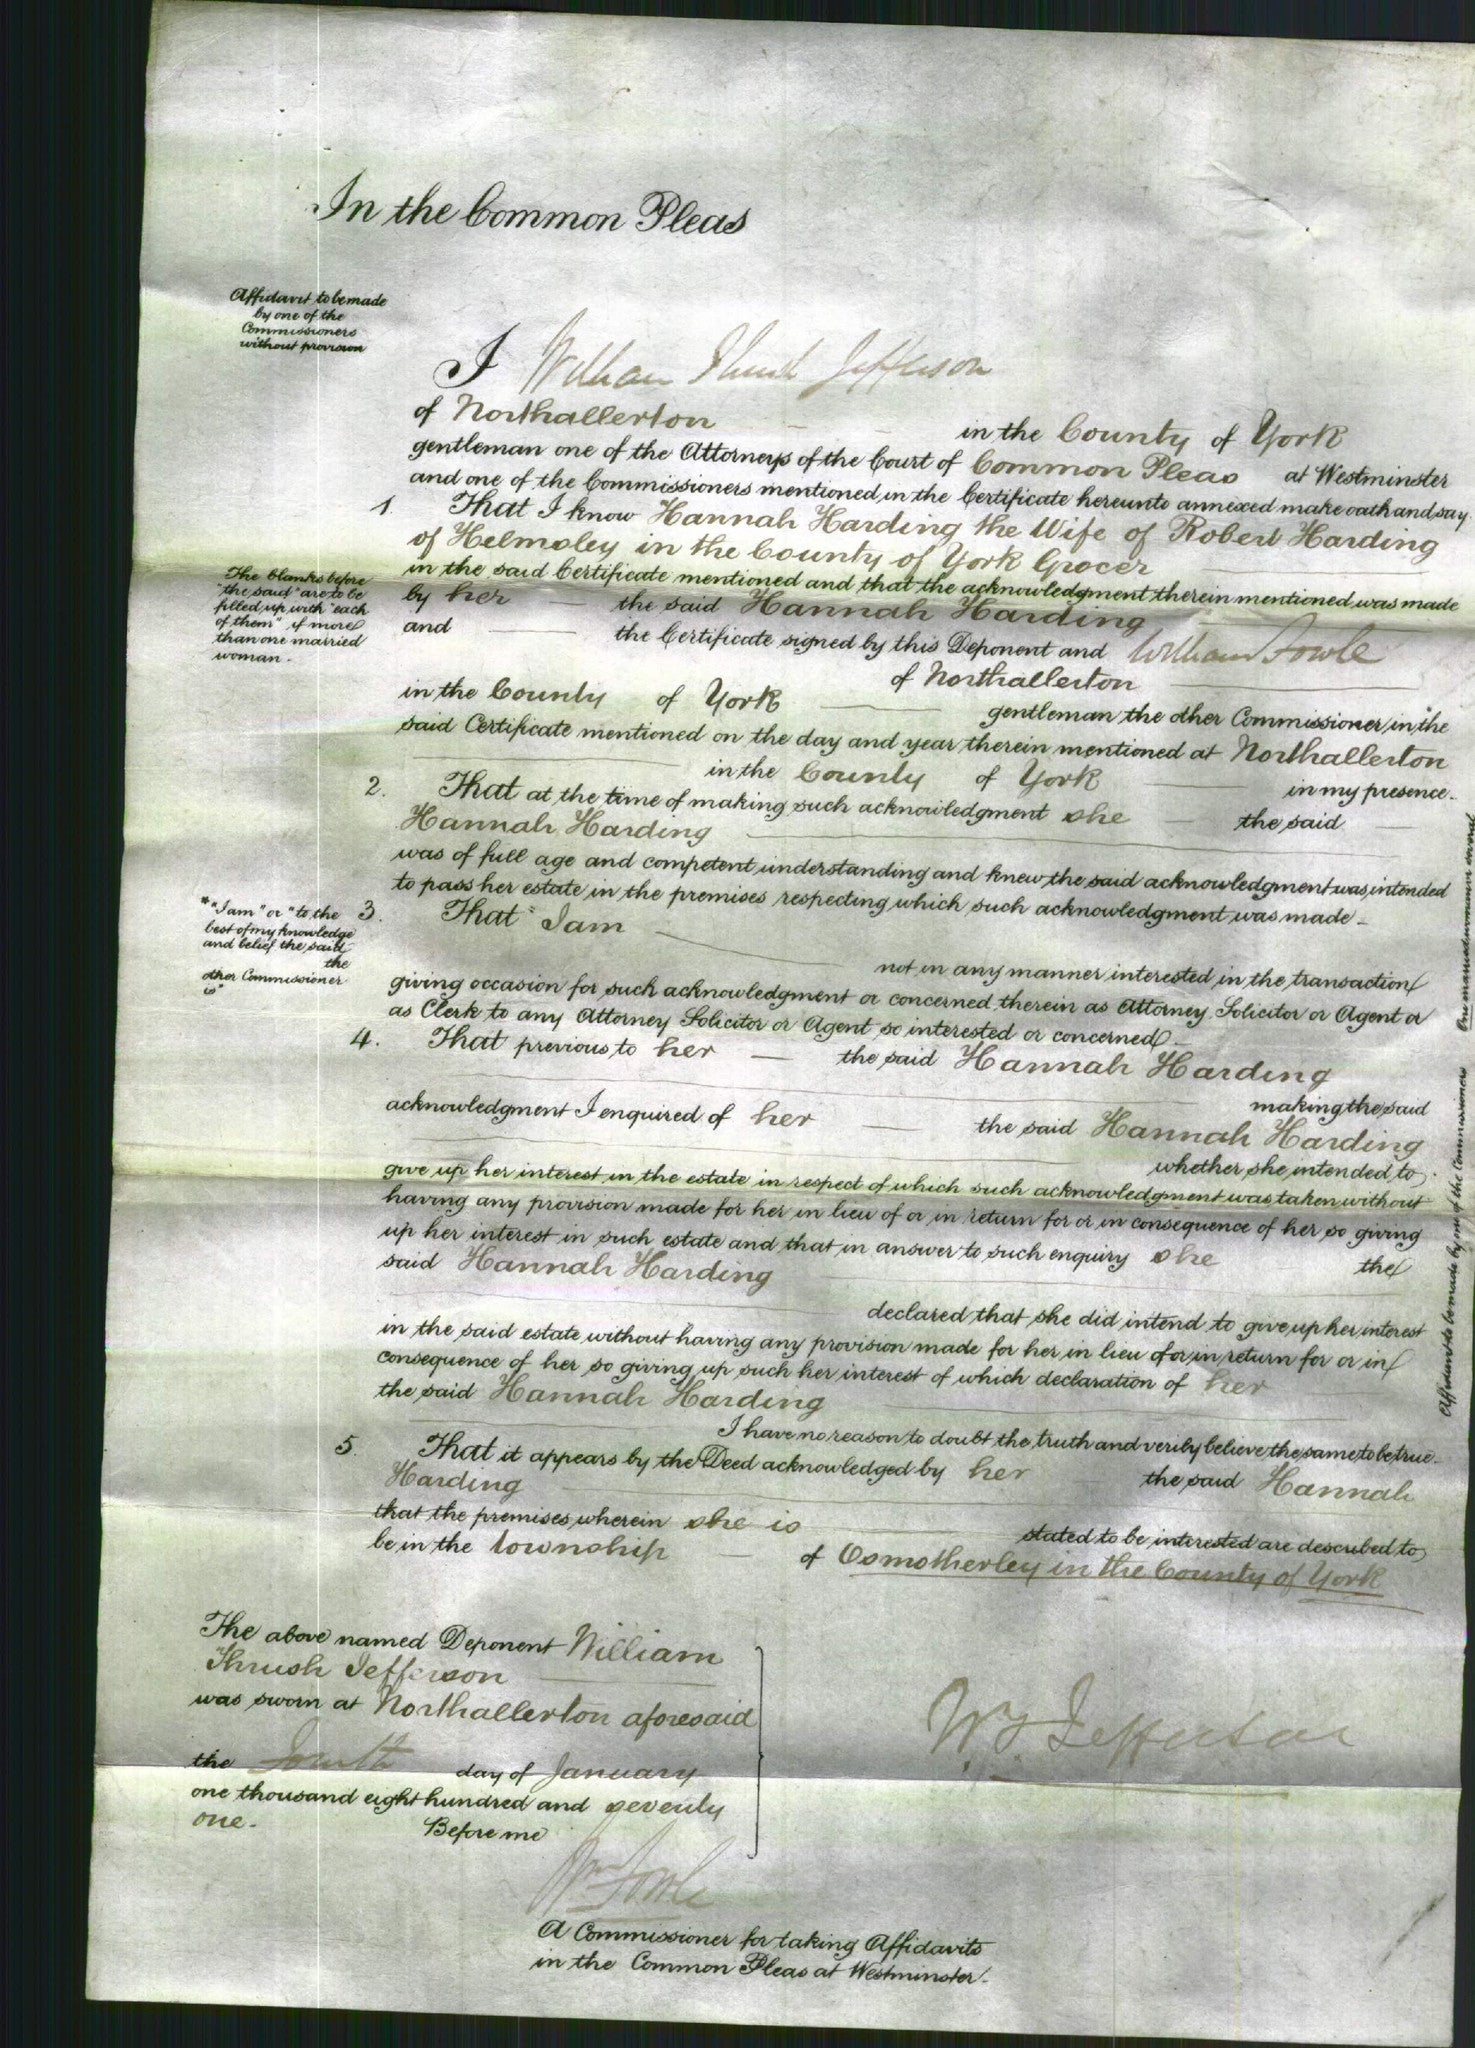 In the Common Pleas
Affidavit to be made
by one of the
Commissioners
without provision
I William Thrush Jefferson
of Northallerton in the County of York
gentleman one of the Attorneys of the Court of Common Pleas at Westminster
and one of the Commissioners mentioned in the Certificate hereunto annexed make oath and say.
1. That I know Hannah Harding the Wife of Robert Harding
of Helmsley in the County of York Grocer
in the said Certificate mentioned and that the acknowledgment therein mentioned was made
The blanks before
"the said" are to be
filled up with "each
of them" if more
than one married
woman.
by her the said Hannah Harding
and the Certificate signed by this Deponent and William Fowle
of Northallerton
in the County of York gentleman the other Commissioner in the
said Certificate mentioned on the day and year therein mentioned at Northallerton
in the County of York in my presence.
2. That at the time of making such acknowledgment she the said
Hannah Harding
was of full age and competent understanding and knew the said acknowledgment was intended
to pass her estate in the premises respecting which such acknowledgment was made
*"I am" or "to the
best of my knowledge
and belief the said
the
other Commissioner
is"
3. That I am
not in any manner interested in the transaction
giving occasion for such acknowledgment or concerned therein as Attorney Solicitor or Agent or
as Clerk to any Attorney Solicitor or Agent so interested or concerned
4. That previous to her the said Hannah Harding
making the said
acknowledgment I enquired of her the said Hannah Harding
whether she intended to
give up her interest in the estate in respect of which such acknowledgment was taken without
having any provision made for her in lieu of or in return for or in consequence of her so giving
up her interest in such estate and that in answer to such enquiry she the
said Hannah Harding
declared that she did intend to give up her interest
in the said estate without having any provision made for her in lieu of or in return for or in
consequence of her so giving up such her interest of which declaration of her
the said Hannah Harding
I have no reason to doubt the truth and verily believe the same to be true.
5. That it appears by the Deed acknowledged by her the said Hannah
Harding
that the premises wherein she is stated to be interested are described to
be in the township of Osmotherley in the County of York
The above named Deponent William
Thrush Jefferson
was sworn at Northallerton aforesaid
the Fourth day of January
one thousand eight hundred and seventy
one.
Before me
Wm Fowle
A Commissioner for taking Affidavits
in the Common Pleas at Westminster.
W. T. Jefferson
Affidavit to be made by one of the Commissioners One married woman